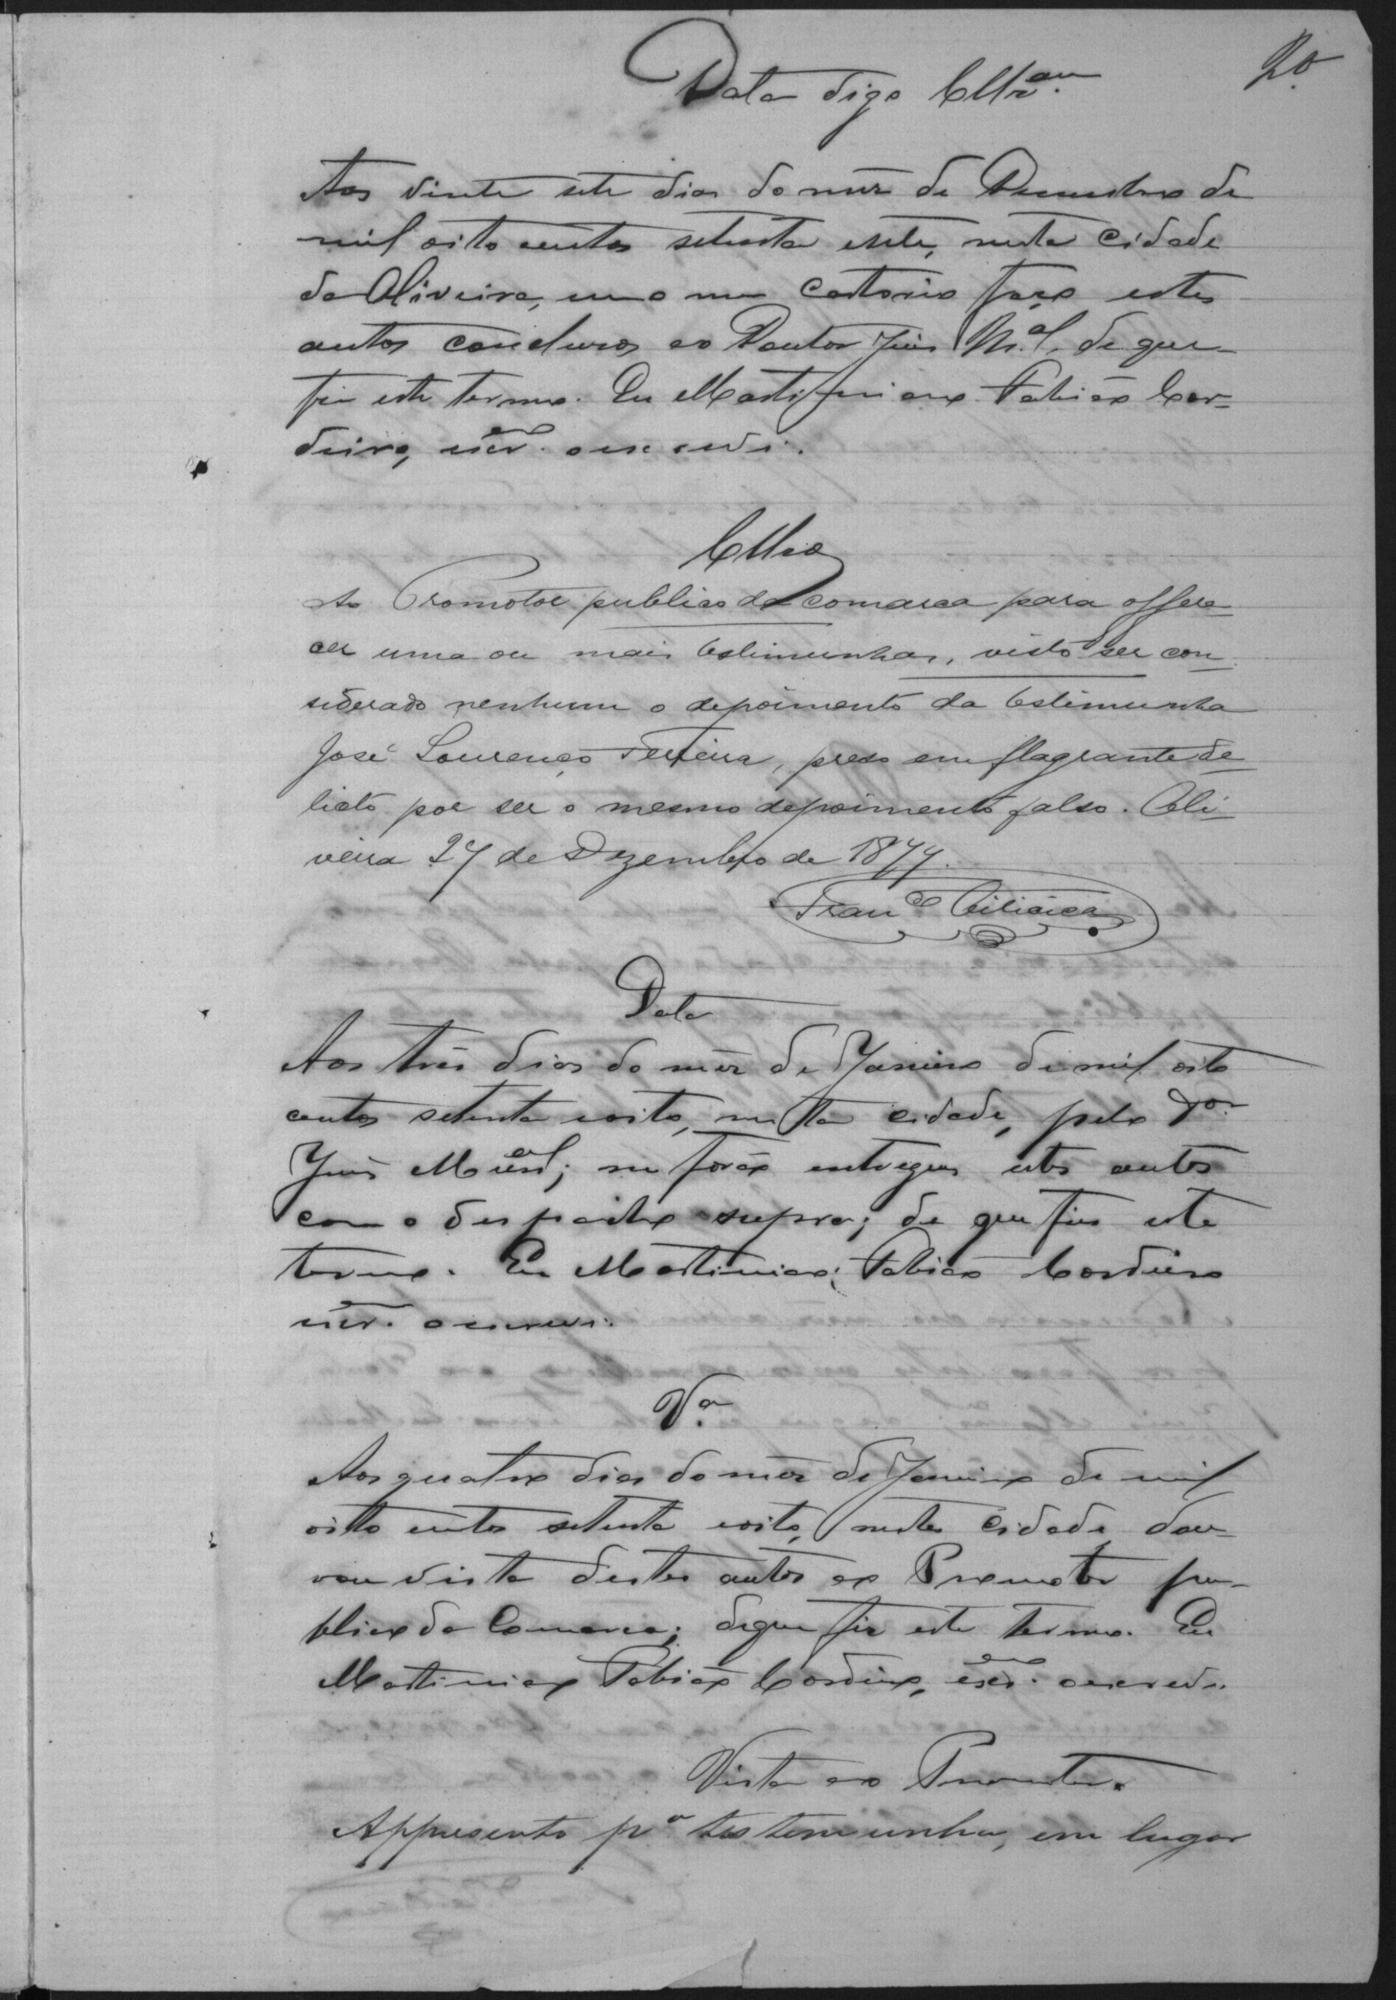 20
Data digo Cllzam.
Aos vinte sete dias do mez de Dezembro de
mil oito centos setenta esete, nesta Cidade
da Oliveira, em o meu Cartorio faço estes
autos concluzos ao Doutor Juis M.al, de que
fiz este termo. Eu Martiniano Fabião Cor-
deiro, escr.am o escrevi.
Cllzo
Ao Promotor publico da comarca para offere-
cer uma ou mais testimunhas, visto ser con-
siderado nenhum o depoimento da testimunha
José Lourenço Ferreira, preso em flagrante de-
licto por ser o mesmo depoimento falso. Oli-
veira 27 de Dezembro de 1877.
Fran.co
Data
Aos três dias do mez de Janeiro de mil oito
centos setenta eoito, nesta cidade, pelo Dor.
Juis M; me forão entregues estes autos
com o despacho supra; de que fiz este
termo. Eu Martiniano Fabião Cordeiro
escr. o escrevi.
V.a
Aos quatro dias do mez de Janeiro de mil
oitto centos setenta eoito, nesta cidade, dou-
vou vista destes autos ao Promotor pu-
blico da Comarca; de que fiz este termo. Eu
Martiniano Fabião Cordeiro, escr. o escrevi.
Vista ao Promotor.
Appresento p.a testemunha, em lugar